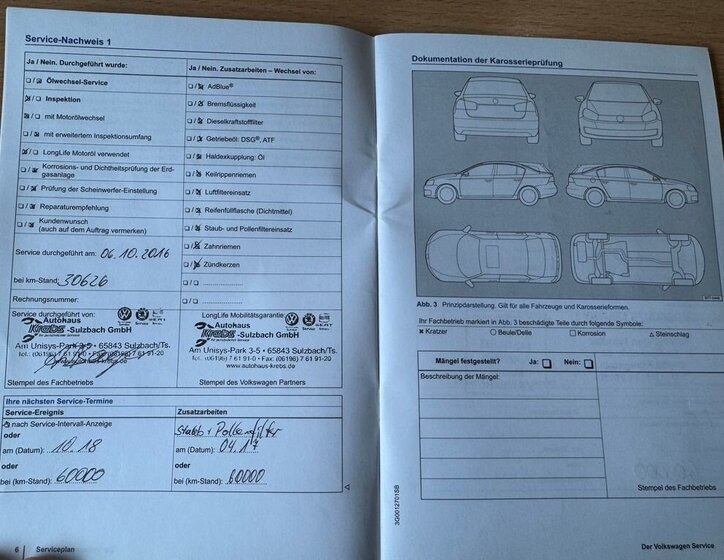 Service-Nachweis 1
Ja / Nein. Durchgeführt wurde:
Ölwechsel-Service
Inspektion
mit Motorölwechsel
mit erweitertem Inspektionsumfang
LongLife Motoröl verwendet
Korrosions- und Dichtheitsprüfung der Erd-
gasanlage
Prüfung der Scheinwerfer-Einstellung
Reparaturempfehlung
Kundenwunsch
(auch auf dem Auftrag vermerken)
Service durchgeführt am: 06.10.2016
bei km-Stand: 30626
Rechnungsnummer:
Ja / Nein. Zusatzarbeiten – Wechsel von:
AdBlue®
Bremsflüssigkeit
Dieselkraftstofffilter
Getriebeöl: DSG®, ATF
Haldexkupplung: Öl
Keilrippenriemen
Luftfiltereinsatz
Reifenfüllflasche (Dichtmittel)
Staub- und Pollenfiltereinsatz
Zahnriemen
Zündkerzen
Service durchgeführt von:
Autohaus
Krebs -Sulzbach GmbH
Am Unisys-Park 3-5 • 65843 Sulzbach/Ts.
Tel. (06196) 7 61 91-0 • Fax (06196) 7 61 91-20
Stempel des Fachbetriebs
LongLife Mobilitätsgarantie:
Autohaus
Krebs -Sulzbach GmbH
Am Unisys-Park 3-5 • 65843 Sulzbach/Ts.
Tel. (06196) 7 61 91-0 • Fax (06196) 7 61 91-20
www.autohaus-krebs.de
Stempel des Volkswagen Partners
Ihre nächsten Service-Termine
Service-Ereignis
nach Service-Intervall-Anzeige
oder
am (Datum): 10.18
oder
bei (km-Stand): 60000
Zusatzarbeiten
Staub + Pollenfilter
am (Datum): 04.17
oder
bei (km-Stand): 60000
6 Serviceplan
Dokumentation der Karosserieprüfung
Abb. 3 Prinzipdarstellung. Gilt für alle Fahrzeuge und Karosserieformen.
Ihr Fachbetrieb markiert in Abb. 3 beschädigte Teile durch folgende Symbole:
× Kratzer ○ Beule/Delle □ Korrosion △ Steinschlag
Mängel festgestellt? Ja: Nein:
Beschreibung der Mängel:
Stempel des Fachbetriebs
3G0012701SB
Der Volkswagen Service